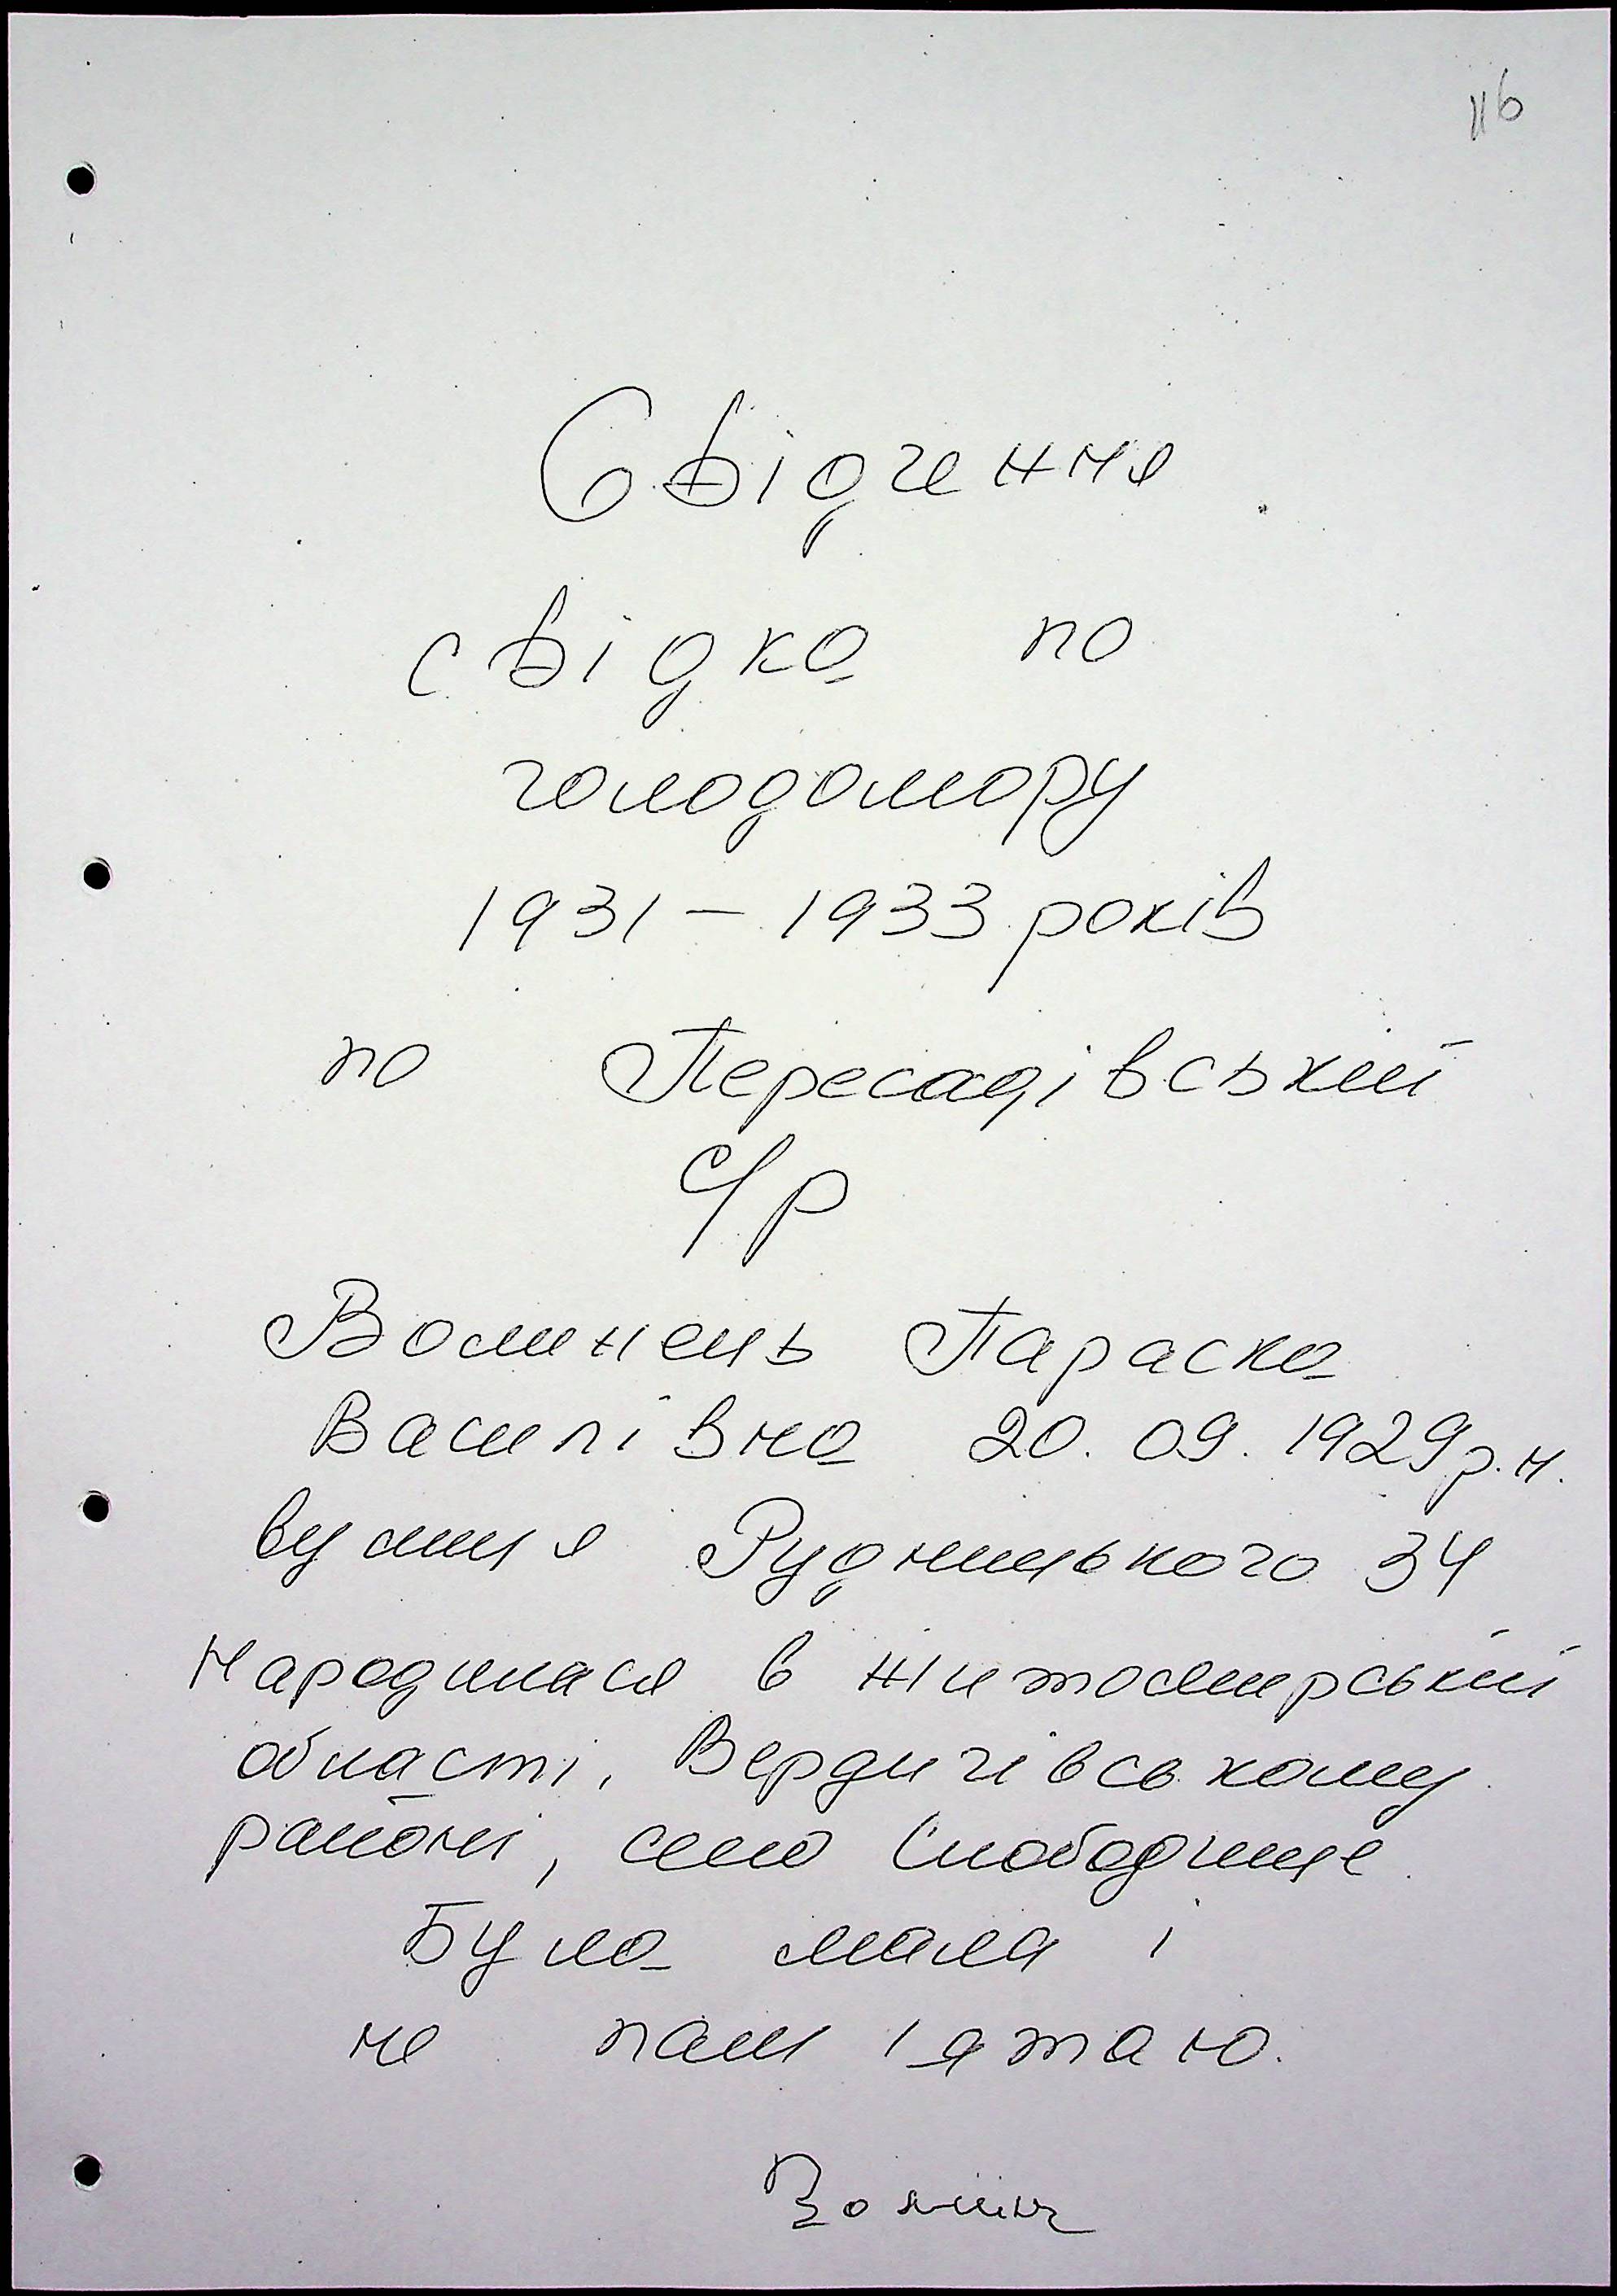 116
Свідчення
свідка по
голодомору
1931 – 1933 років
по Пересадівській
с/р
Волинець Параска
Василівна 20.09.1929 р.н.
вулиця Рудницького 34
Народилася в Житомирській
області, Бердичівському
районі, село Слободище.
Була мала і
не пам'ятаю.